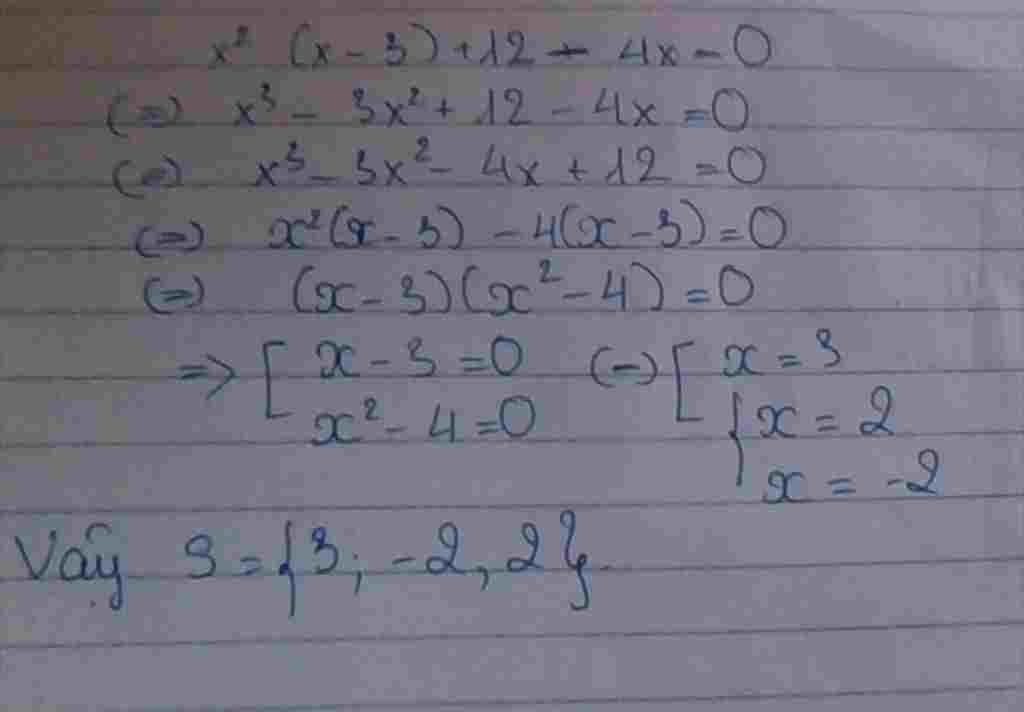 x² (x - 3) + 12 - 4x = 0
(=) x³ - 3x² + 12 - 4x = 0
(=) x³ - 3x² - 4x + 12 = 0
(=) x²(x - 3) - 4(x - 3) = 0
(=) (x - 3)(x² - 4) = 0
=> [ x - 3 = 0 (=) [ x = 3
x² - 4 = 0 { x = 2
x = -2
Vậy S = {3; -2, 2}.